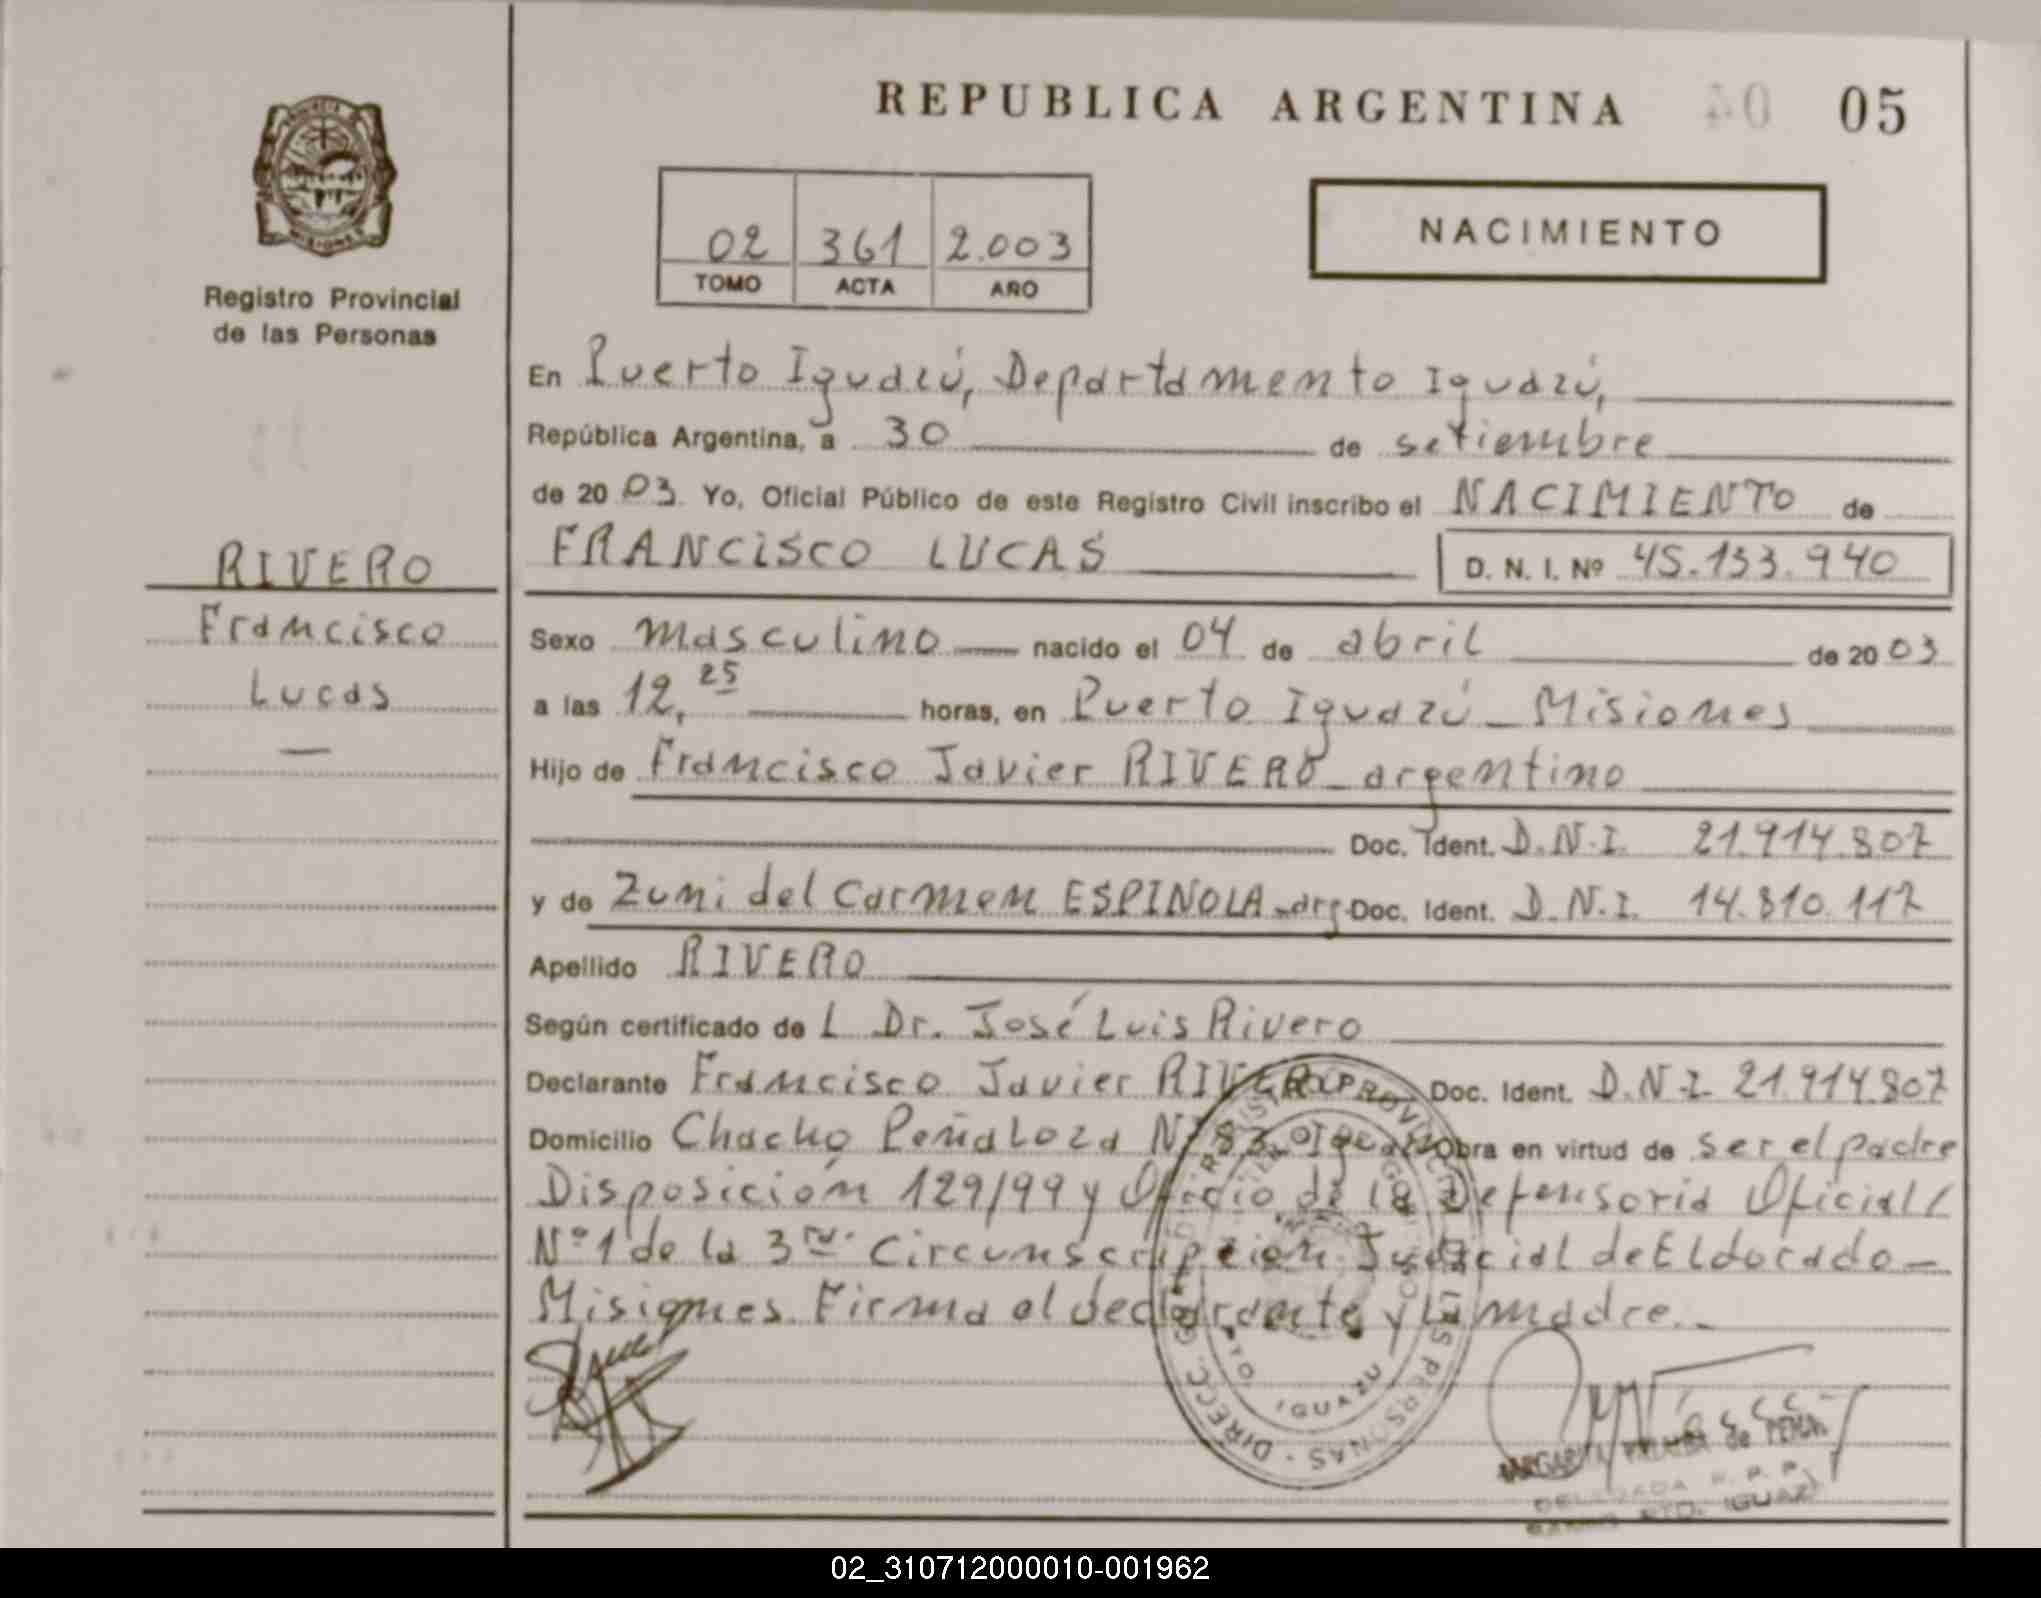 REPUBLICA ARGENTINA 04 05
PROVINCIA
MISIONES
Registro Provincial
de las Personas
02 361 2.003
TOMO ACTA AÑO
NACIMIENTO
RIVERO
Francisco
Lucas
—
En Puerto Iguazú, Departamento Iguazú,
República Argentina, a 30 de setiembre
de 2003. Yo, Oficial Público de este Registro Civil inscribo el NACIMIENTO de
FRANCISCO LUCAS D. N. I. Nº 45.133.940
Sexo masculino nacido el 04 de abril de 2003
a las 12,25 horas, en Puerto Iguazú - Misiones
Hijo de Francisco Javier RIVERO - argentino
Doc. Ident. D.N.I. 21.914.807
y de Zuni del Carmen ESPINOLA - arg. Doc. Ident. D.N.I. 14.810.117
Apellido RIVERO
Según certificado de L Dr. José Luis Rivero
Declarante Francisco Javier RIVERO Doc. Ident. D.N.I. 21.914.807
Domicilio Chacho Peñaloza Nº 83 Obra en virtud de ser el padre
Disposición 129/99 y Oficio de la Defensoria Oficial/
Nº 1 de la 3ra. Circunscripción Judicial de Eldorado -
Misiones. Firma el declarante y la madre. -
DIRECC. GRAL. DEL REGISTRO PROVINCIAL DE LAS PERSONAS
PTO IGUAZU
MARGARITA de PEÑA
DELEGADA R. P. P.
BARRIO PTO. IGUAZU
02_310712000010-001962